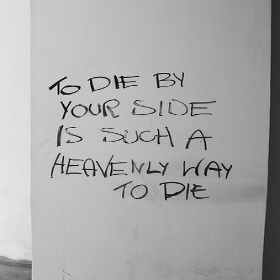 TO DIE BY
YOUR SIDE
IS SUCH A
HEAVENLY WAY
TO DIE